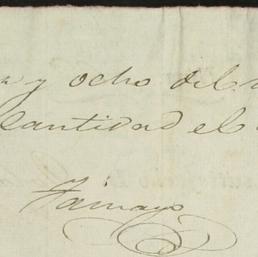 y ocho del
cantidad el
Tamayo